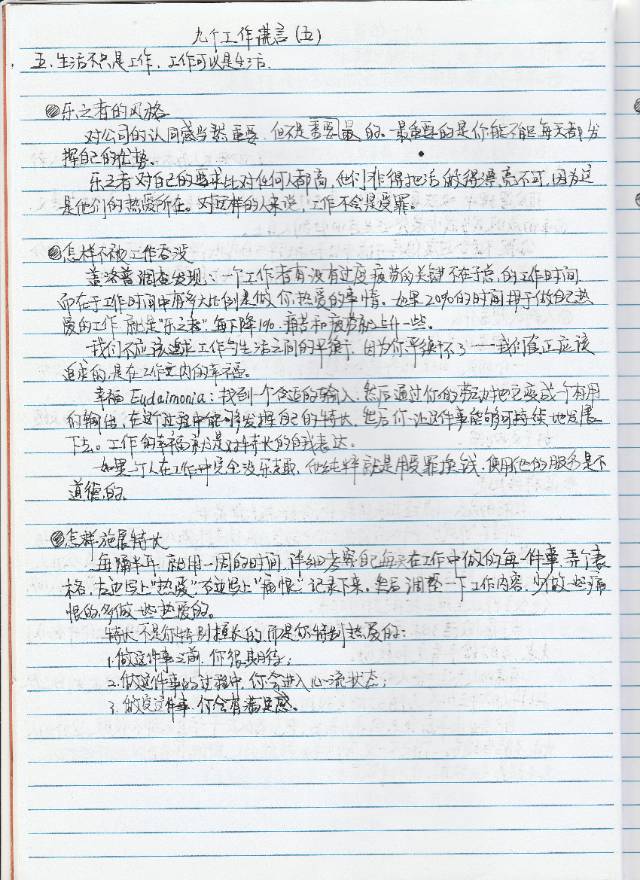 九个工作谎言(五)
五.生活不只是工作,工作可以是生活.
①乐之者的风格
对公司的认同感当然重要,但不是重要最的.最重要的是你能不能每天都发
挥自己的优势。
乐之者对自己的要求比对任何人都高,他们非得把活做得漂亮不可,因为这
是他们的热爱所在。对这样的人来说,工作不会是受罪。
②怎样不被工作吞没
盖洛普调查发现,一个工作者有没有过度疲劳的关键不在于总的工作时间
而在于工作时间中有多大比例是做你热爱的事情。如果20%的时间用于做自己热
爱的工作,就是“乐之者”.每下降1%,痛苦和疲劳就上升一些。
我们不应该追求工作与生活之间的平衡,因为你平衡不了——我们真正应该
追求的,是在工作之内的幸福。
幸福Eudaimonia:找到一个合适的输入,然后通过你的劳动把它变成一个有用
的输出,在这个过程中能够发挥自己的特长,然后你让这件事能够可持续地发展
下去。工作的幸福系是对特长的自我表达。
如果一个人在工作中完全没乐趣,他纯粹就是用受罪换钱,使用他的服务是不
道德的.
③怎样施展特长
每隔半年,就用一周的时间,详细考察自己每天在工作中做的每一件事,弄个表
格,左边写上“热爱”,右边写上“痛恨”,记录下来.然后调整一下工作内容,少做些痛
恨的,多做些热爱的.
特长不是你特别擅长的,而是你特别热爱的:
1.做这件事之前,你很期待;
2.做这件事的过程中,你会进入心流状态;
3.做完这件事,你会有满足感。